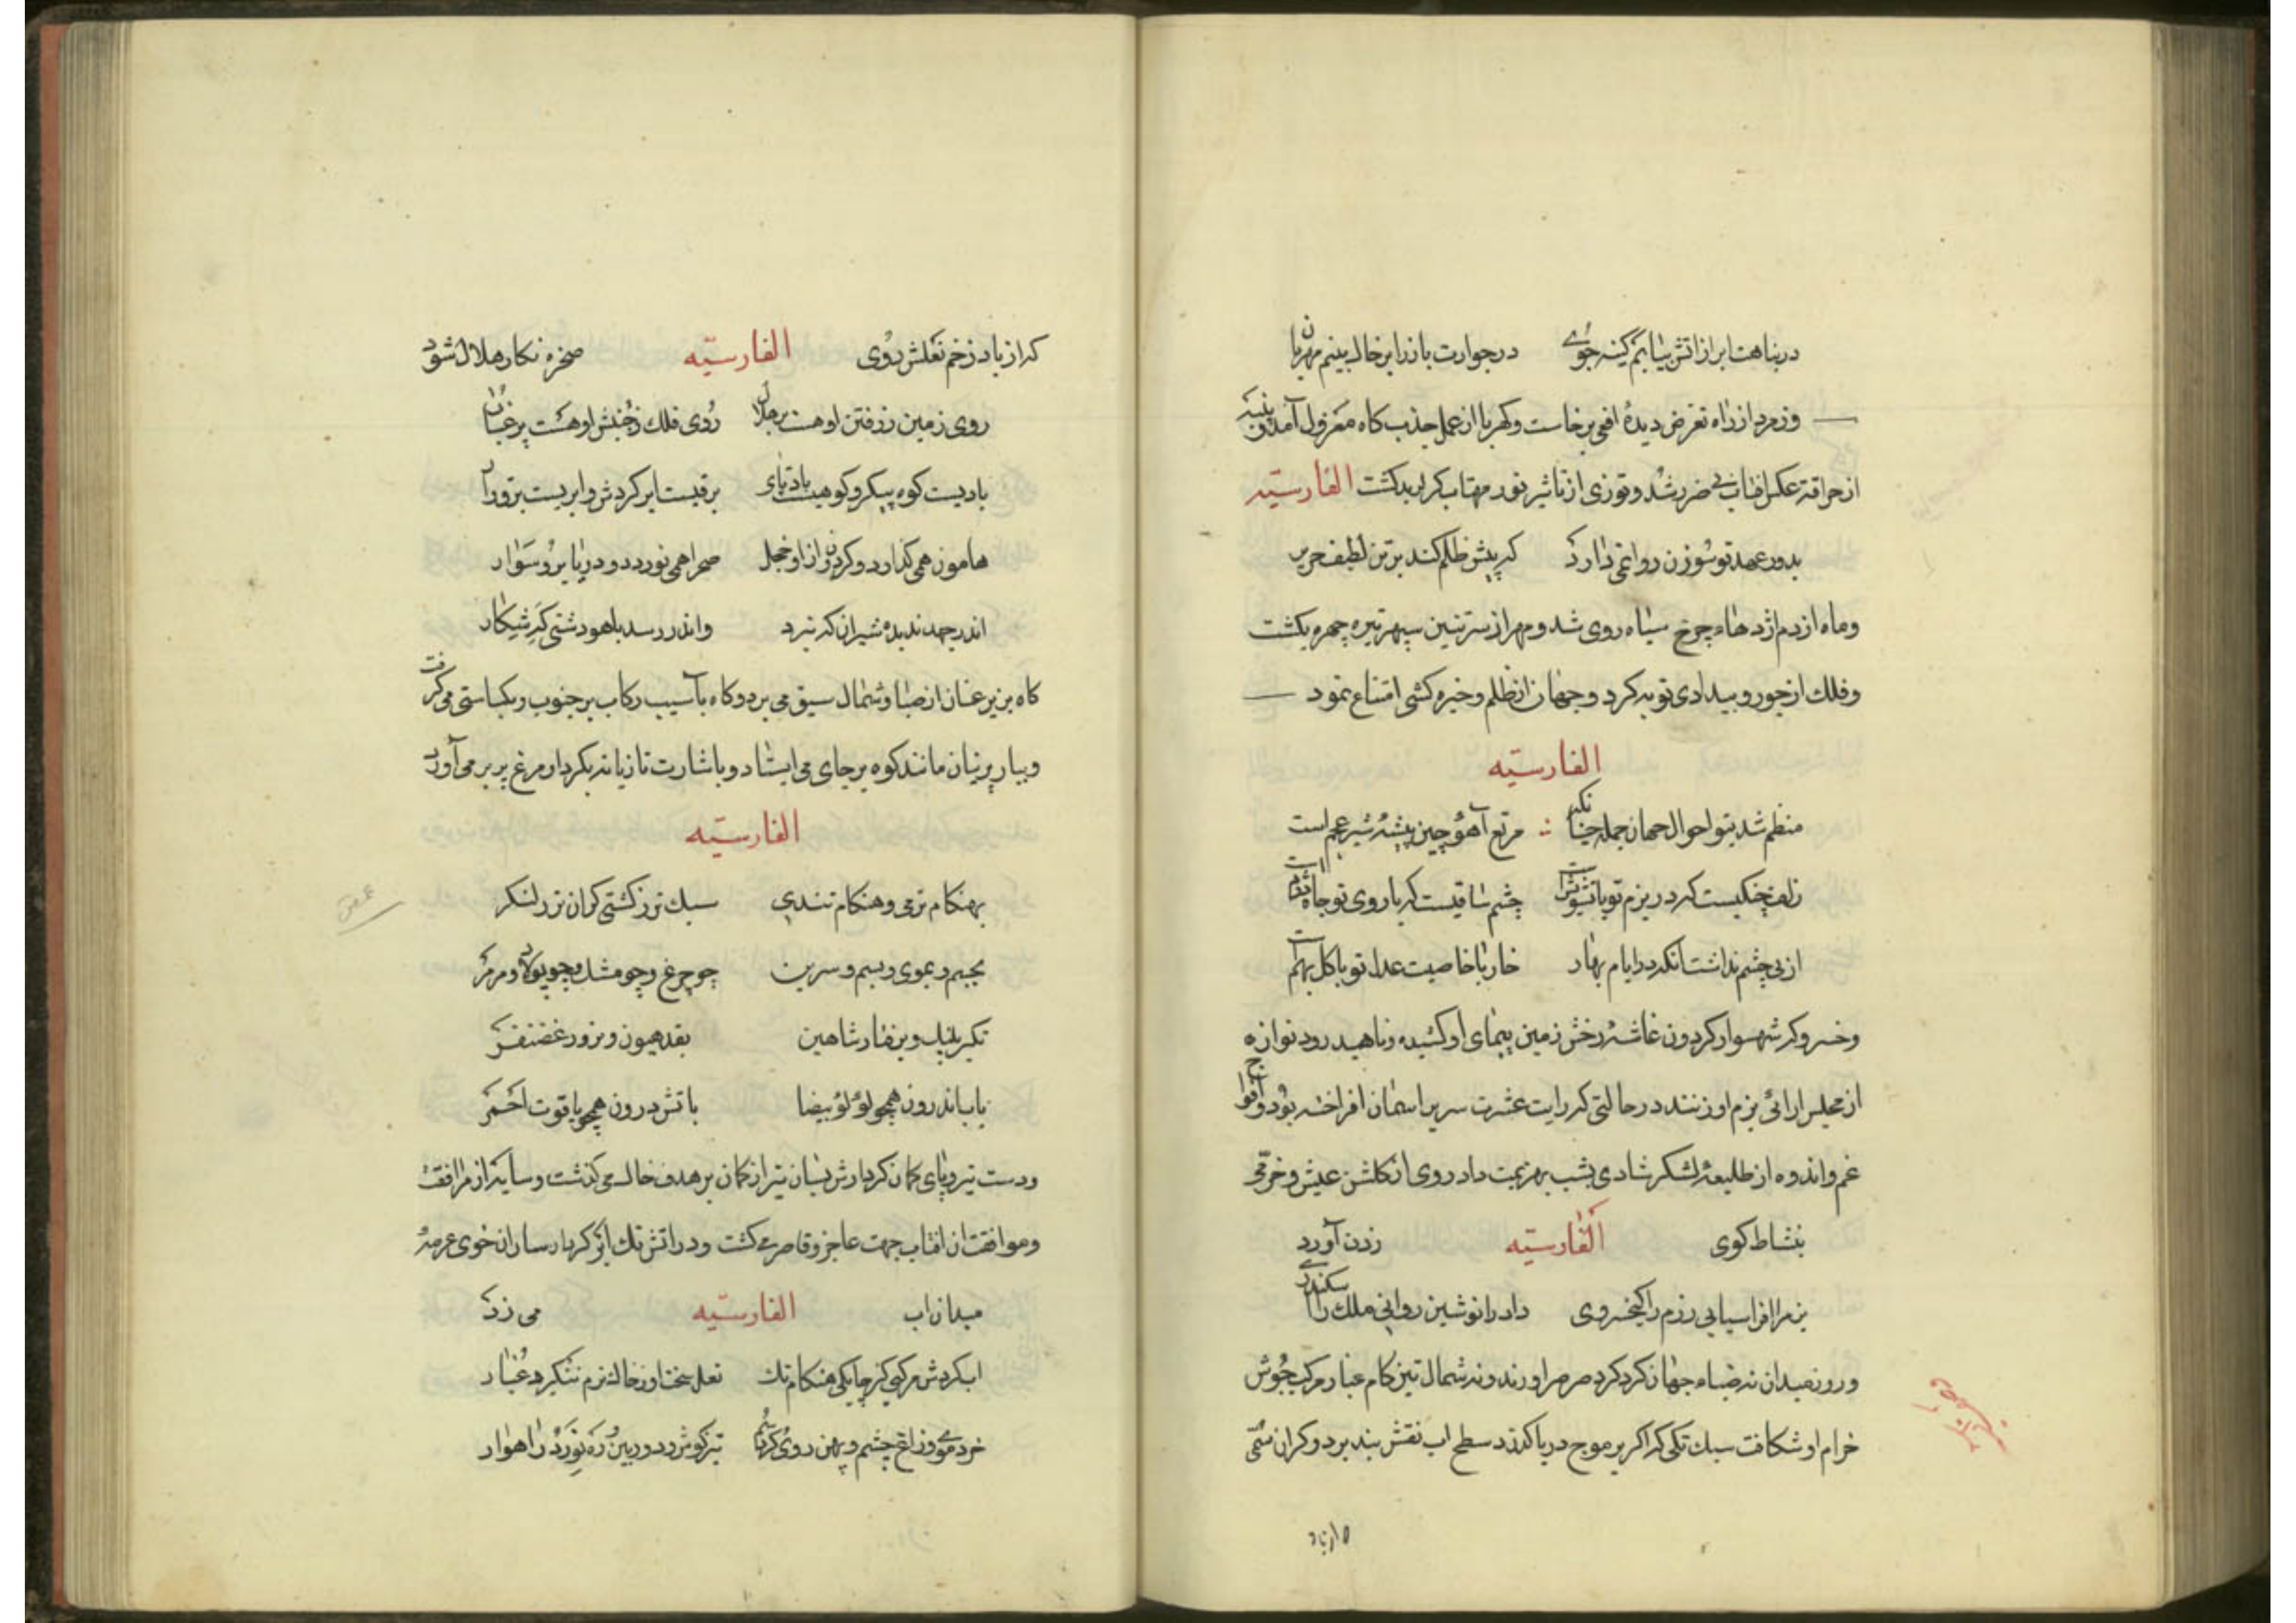 در پناهت ابر از اتش نیابم کینه جوی در جوارت باز را بر خاك بینم مهربان
وزمرد از راه تعرض دیدۀ افعی برخاست وکهربا از عمل جذب کاه معزول آمد
از حراقت عکس افتاب بی ضرر شد و توزی از تاثیر نور مهتاب کرانه بدکشت الفارسیّه
بدور عهد تو سوزن روا نمی دارد که پیش ظلم کند بر تن لطیف حریر
وماه از دم اژدهاء چرخ سیاه روی شد ومهر از سپهر تیره چهره بکشت
وفلك از جور و بیدادی توبه کرد و جهان از ظلم وخیره کشی امتناع نمود
الفارسیّه
منظم شد بتو احوال جهان جمله چنانکه مرتع آهوء چین بیشهٔ شیر عجم است
زلف چنکیست که در بزم تو با تشویش است چشم ساقیست که با روی تو
خار با خاصیت عدل تو با کل بهم
وخسرو کر شهسوار کردون غاشیهٔ رخش زمین پیمای او کشیده وناهید رود نوازه
از مجلس ارائی بزم او زنند در حالتی که رایت عشرت سر بر اسمان افراخته بود وافواج
غم واندوه از طلیعهٔ لشکر شادی بشب بهزیمت داد روی از کلشن عیش وخرّمی
بنشاط کوی الفارسیّه زدن آورد
بزم را افراسیابی رزم را کیخسروی داد را نوشین روانی ملك را سکندری
وروز میدان نه صباء جهان کرد کرد صرصر اورند ونه شمال تیز کام غبار مرکب جوش
خرام او شکافت سبك تکی که اکر بر موج دریا کذرد سطح اب نقش بند برد وکران سمی
که از باد زخم نعلش روی الفارسیّه صخره نکار هلال شود
روی زمین ز رفتن او هست پر هلال روی فلك ز جنبش او هست پر غبار
بادیست کوه پیکر و کوهیست بادپای برقیست ابر کردش و ابریست برق
هامون همی کذارد وکردون ازو خجل صحرا همی نوردد ودریا برو سوار
اندر جهد بدیدهٔ شیران که نبرد واندر رسد باهو دشتی که شکار
کاه بزیر عنان از صبا وشمال سبق می برد وکاه بآسیب رکاب بر جنوب ونکبا ستی می کرفت
مانند کوه بر جای می ایستاد و باشارت تازیانه بکردار مرغ پر بر می آورد
الفارسیّه
بهنکام نرمی وهنکام تندی سبك تر ز کشتی کران تر ز لنکر
بجسم و بموی و بسم و سرین چو چرغ وچو مشك وچو پولاد ومرمر
تکبر پلنك وبرفتار شاهین بقد هیون وبزور غضنفر
باب اندرون همچو لؤلؤ بیضا باتش درون همچو یاقوت احمر
ودست تیر وپای کمان کردارش بسان تیر از کمان بر هدف خاك می کذشت وسایه از مرافقت
وموافقت ان افتاب جهت عاجز وقاصر می کشت ودر اتش تك ابر کردار ساران خوی عرصهٔ
میدان اب الفارسیّه می زد
اب کردش مرکبی کز چابکی هنکام تك نعل سخت او ز خاك نرم ننکیزد غبار
خرد موی وزاغ چشم وپهن روی تیز کوش ودوربین ره نورد راهوار